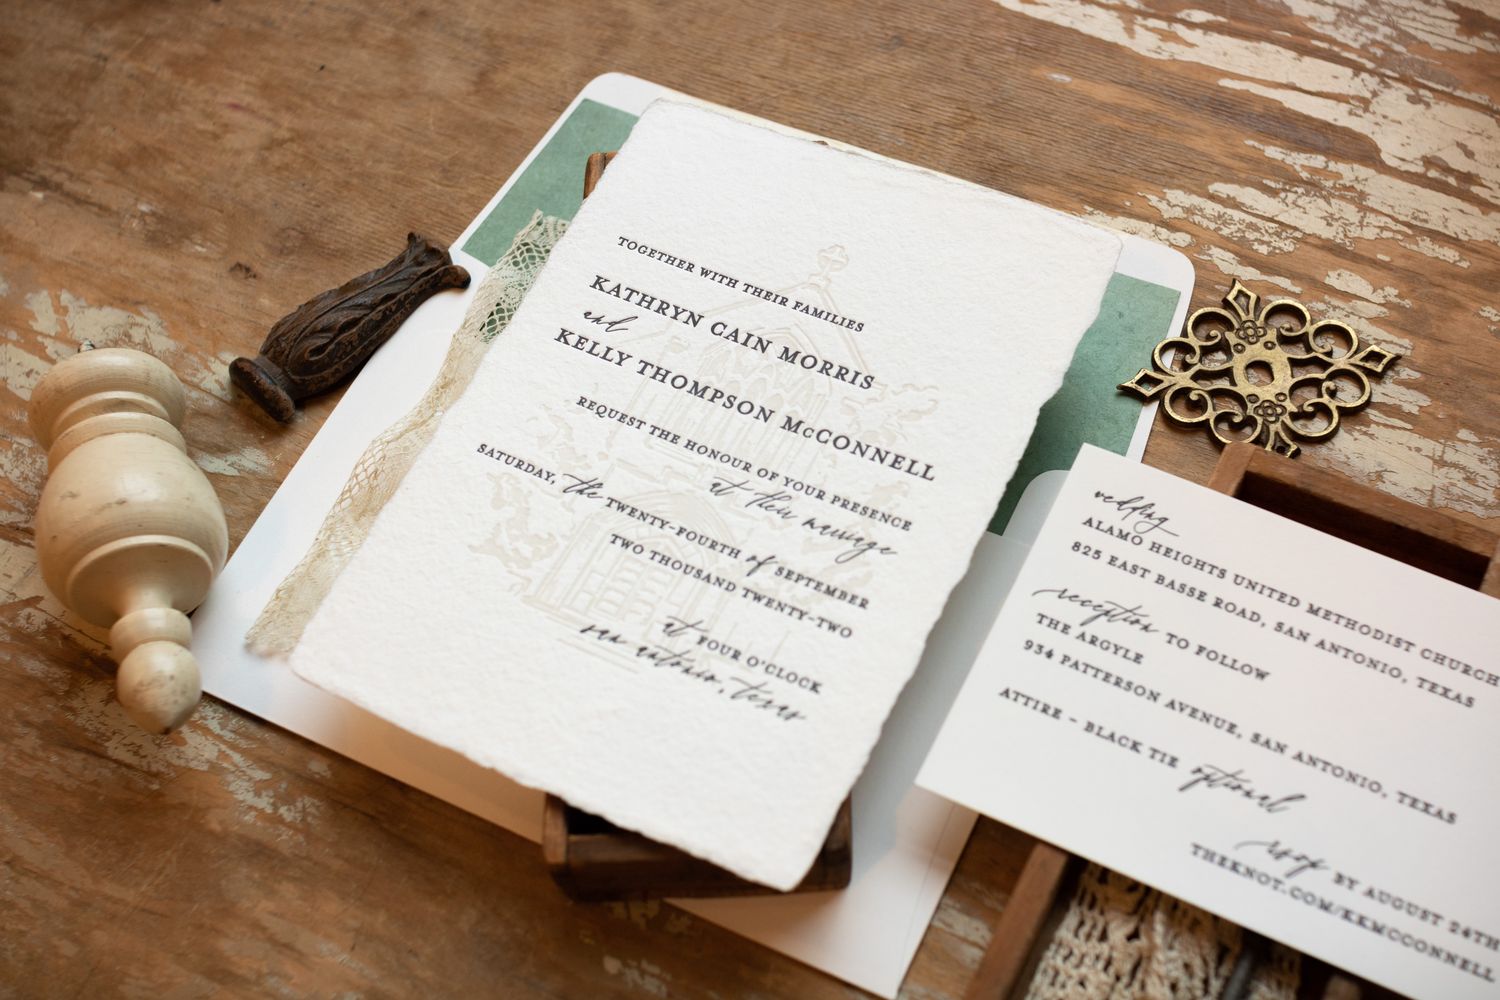 TOGETHER WITH THEIR FAMILIES
KATHRYN CAIN MORRIS
and
KELLY THOMPSON McCONNELL
REQUEST THE HONOUR OF YOUR PRESENCE
at their marriage
SATURDAY, the TWENTY-FOURTH of SEPTEMBER
TWO THOUSAND TWENTY-TWO
at FOUR O'CLOCK
san antonio, texas
wedding
ALAMO HEIGHTS UNITED METHODIST CHURCH
825 EAST BASSE ROAD, SAN ANTONIO, TEXAS
reception TO FOLLOW
THE ARGYLE
934 PATTERSON AVENUE, SAN ANTONIO, TEXAS
ATTIRE - BLACK TIE optional
rsvp BY AUGUST 24TH
THEKNOT.COM/KKMCCONNELL